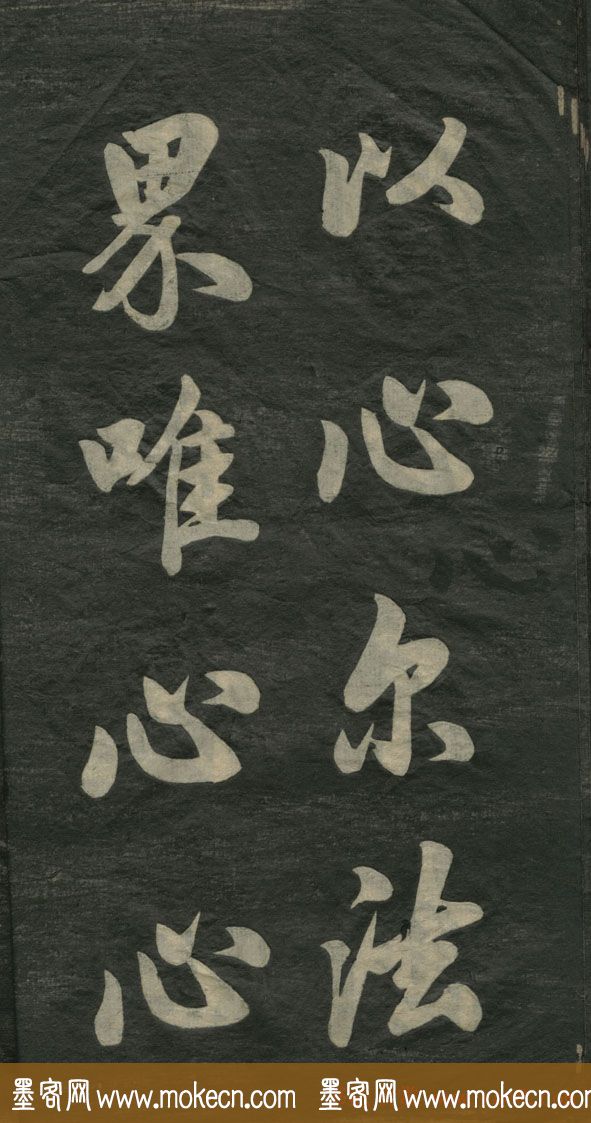 以心尔法
界唯心心
墨客网 www.mokecn.com 墨客网 www.mokecn.com